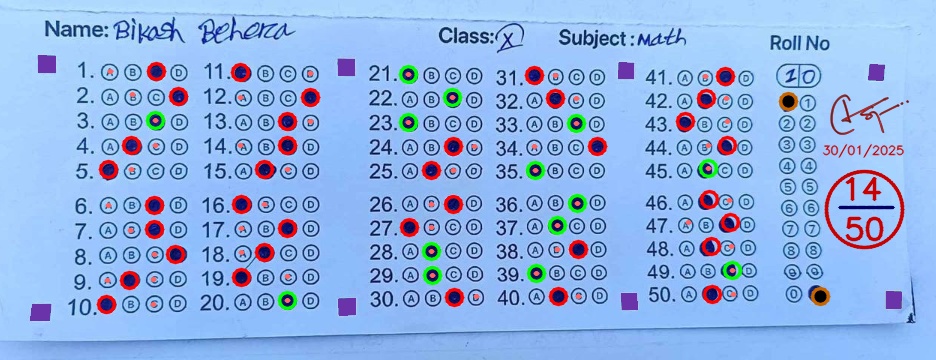 Name: Bikash Behera
Class: X
Subject: Math
Roll No
10
1. A B D
2. A B C
3. A B D
4. A C D
5. B C D
6. A B D
7. A B D
8. A B C
9. A C D
10. B C D
11. B C D
12. A B C
13. A B D
14. A B D
15. A C D
16. B C D
17. A B D
18. A C D
19. B C D
20. A B D
21. B C D
22. A B D
23. B C D
24. A B D
25. A C D
26. A B D
27. B C D
28. A C D
29. A C D
30. A B D
31. B C D
32. A C D
33. A B D
34. A B C
35. B C D
36. A B D
37. A C D
38. A B D
39. B C D
40. A C D
41. A B D
42. A C D
43. B C D
44. A B D
45. A C D
46. A C D
47. A B D
48. A C D
49. A B D
50. A C D
1
2 2
3 3
4 4
5 5
6 6
7 7
8 8
9 9
0
30/01/2025
14
50